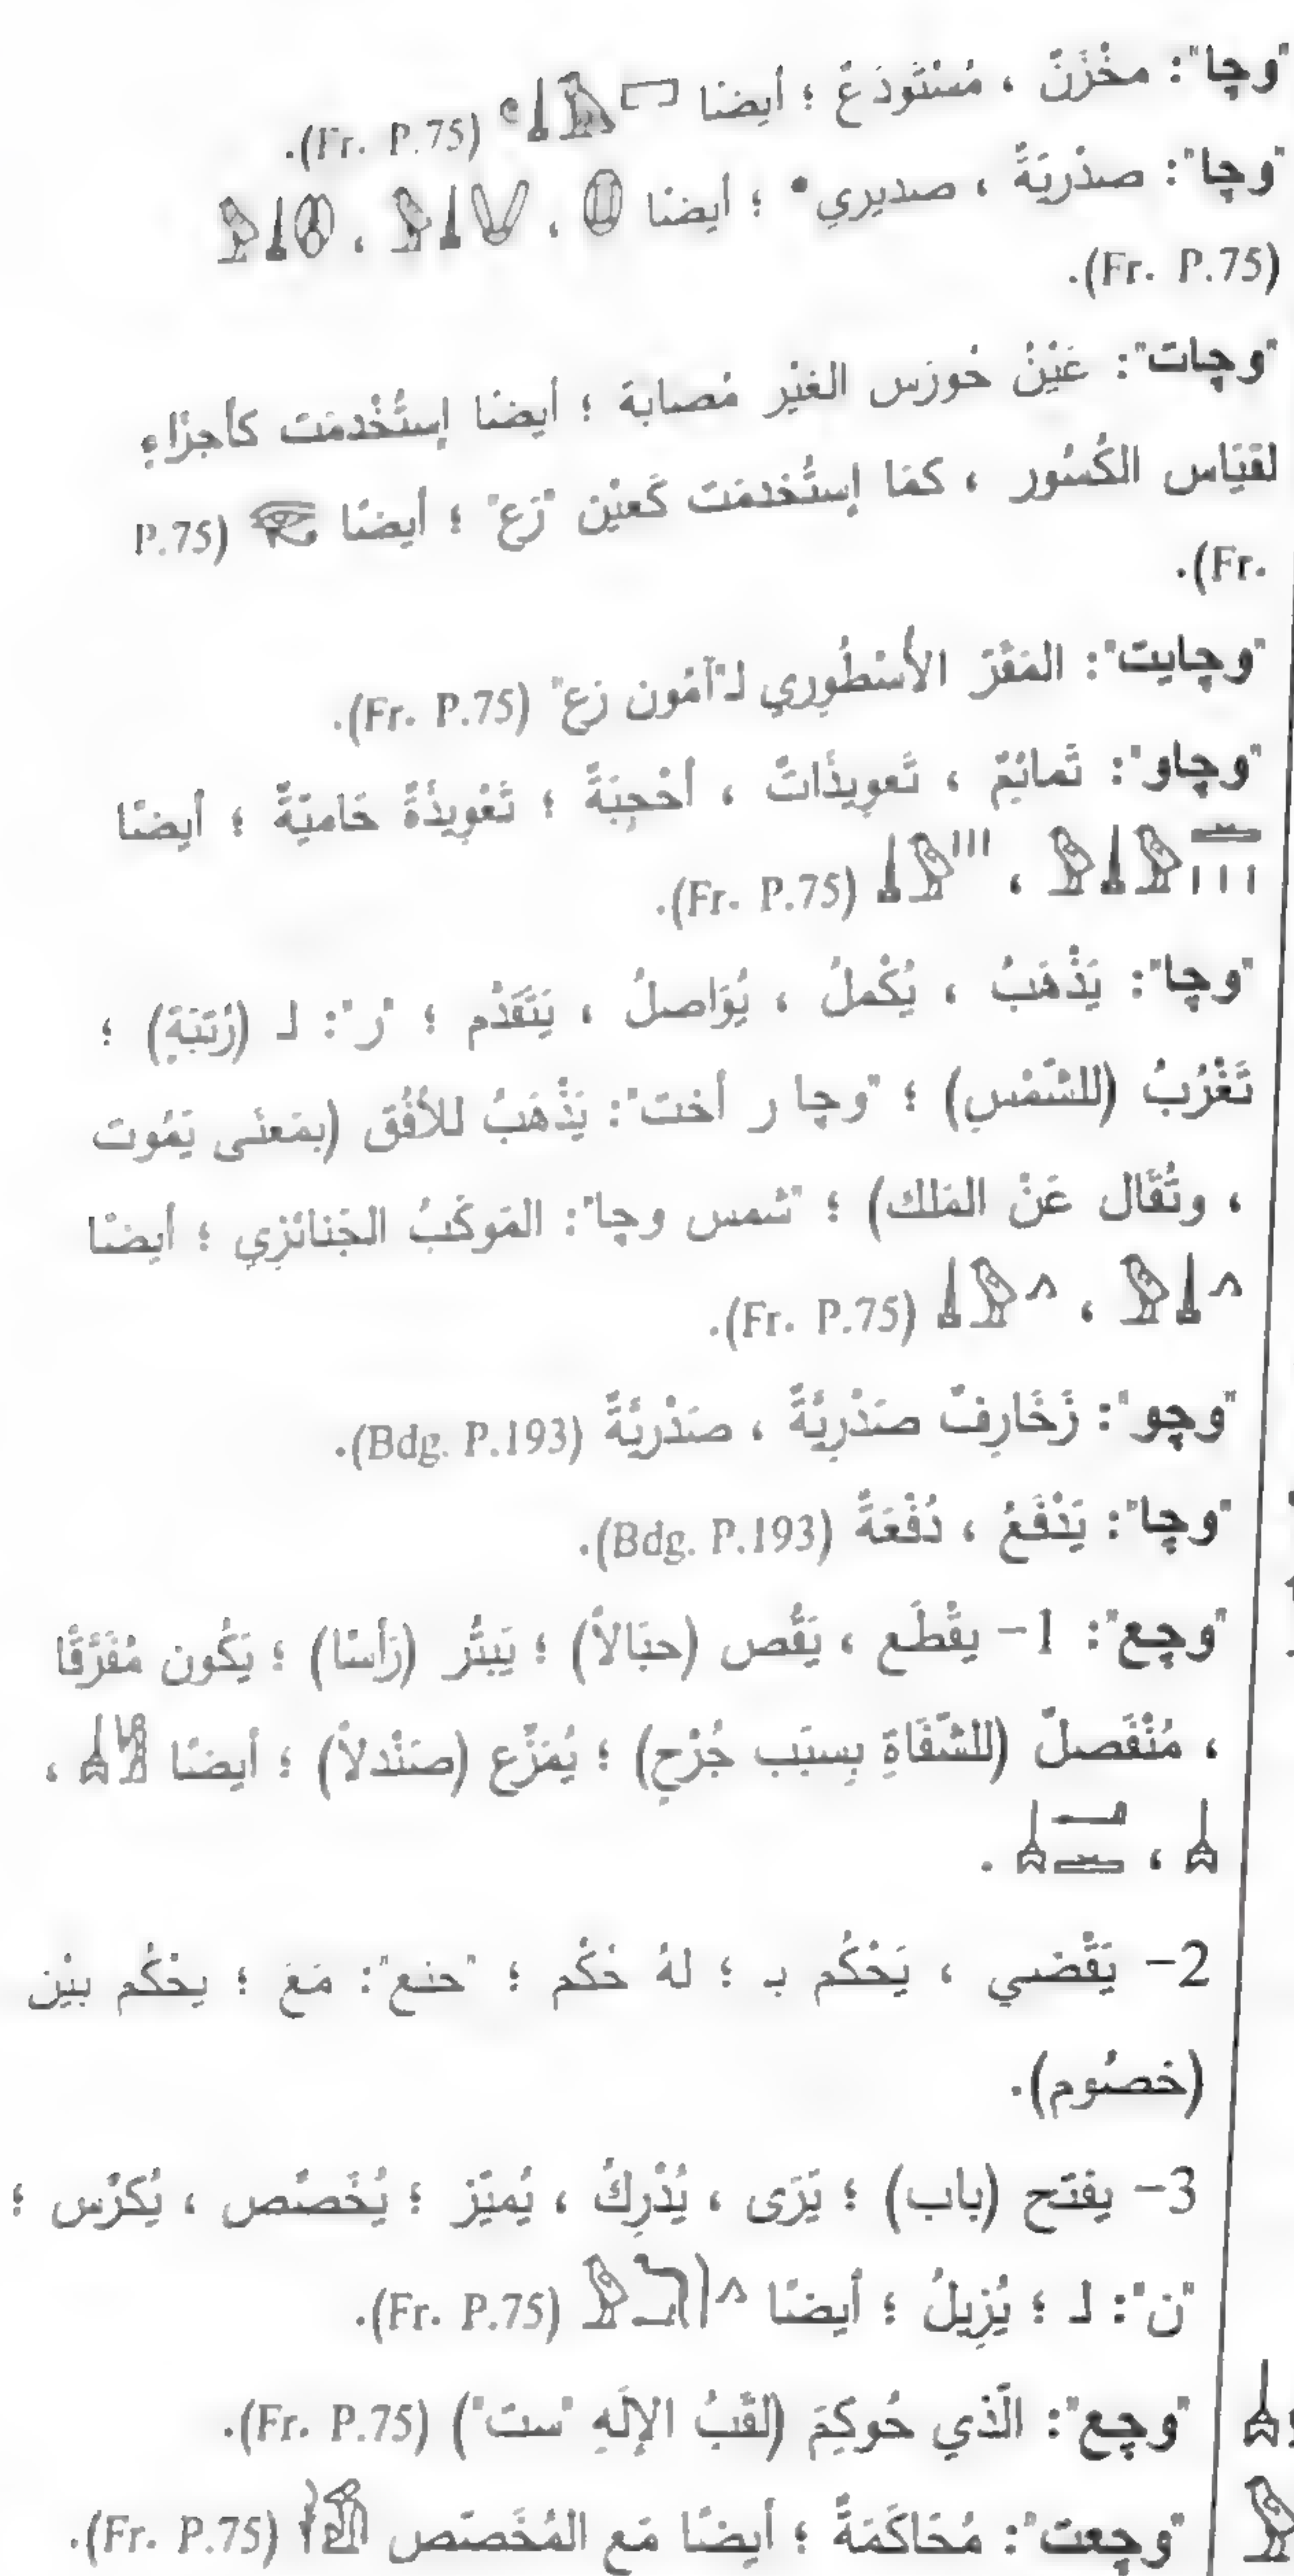 "وچا": مخْزَنٌ ، مُسْتَودَعٌ ؛ أيضًا (Fr. P.75).
"وچا": صدْريَةً ، صديري* ؛ أيضًا ، ،
(Fr. P.75).
"وچات": عَيْنُ حُورَس الغَيْر مُصابَة ؛ أيضًا إستُخْدمَت كأجزَاءِ
لقيَاس الكُسُور ، كمَا إستُخدمَت كَعيْن "رَع" ؛ أيضًا (P.75
Fr.).
"وچايت": المَقَرّ الأسْطُوري لـ"آمُون رَع" (Fr. P.75).
"وچاو": تَمائمٌ ، تَعويذَاتٌ ، أحْجِبَةً ؛ تَعْويذَةً حَاميَّةً ؛ أيضًا
، (Fr. P.75).
"وچا": يَذْهَبُ ، يُكْملُ ، يُوَاصلُ ، يَتَقَدَّم ؛ "ر": لـ (رُتبَةٍ) ؛
تَغْرُبُ (للشّمْسِ) ؛ "وچا ر أخت": يَذْهَبُ للأُفُق (بمَعنَى يَمُوت
، وتُقَال عَنْ المَلك) ؛ "شمس وچا": المَوكَبُ الجَنائزِي ؛ أيضًا
، (Fr. P.75).
"وچو": زَخَارفٌ صَدْريَّةً ، صَدْريَّةً (Bdg. P.193).
"وچا": يَدْفَعُ ، دُفْعَةً (Bdg. P.193).
"وچع": 1– يقْطَع ، يَقُص (حبَالاً) ؛ يَبتُر (رَأسًا) ؛ يَكُون مُفَرَّقًا
، مُنْفَصلّ (للشّفَاةِ بِسبَب جُرْحٍ) ؛ يُمَزّع (صَنْدلاً) ؛ أيضًا ،
، .
2– يَقْضي ، يَحْكُم بـ ؛ لهُ حُكْم ؛ "حنع": مَعَ ؛ يحْكُم بيْن
(خصُوم).
3– يفتَح (باب) ؛ يَرَى ، يُدْرِكُ ، يُميّز ؛ يُخَصّص ، يُكرّس ؛
"ن": لـ ؛ يُزِيلُ ؛ أيضًا (Fr. P.75).
"وچع": الّذي حُوكِمَ (لقَبُ الإلَهِ "ست") (Fr. P.75).
"وچعت": مُحَاكَمَةً ؛ أيضًا مَع المُخَصّص (Fr. P.75).